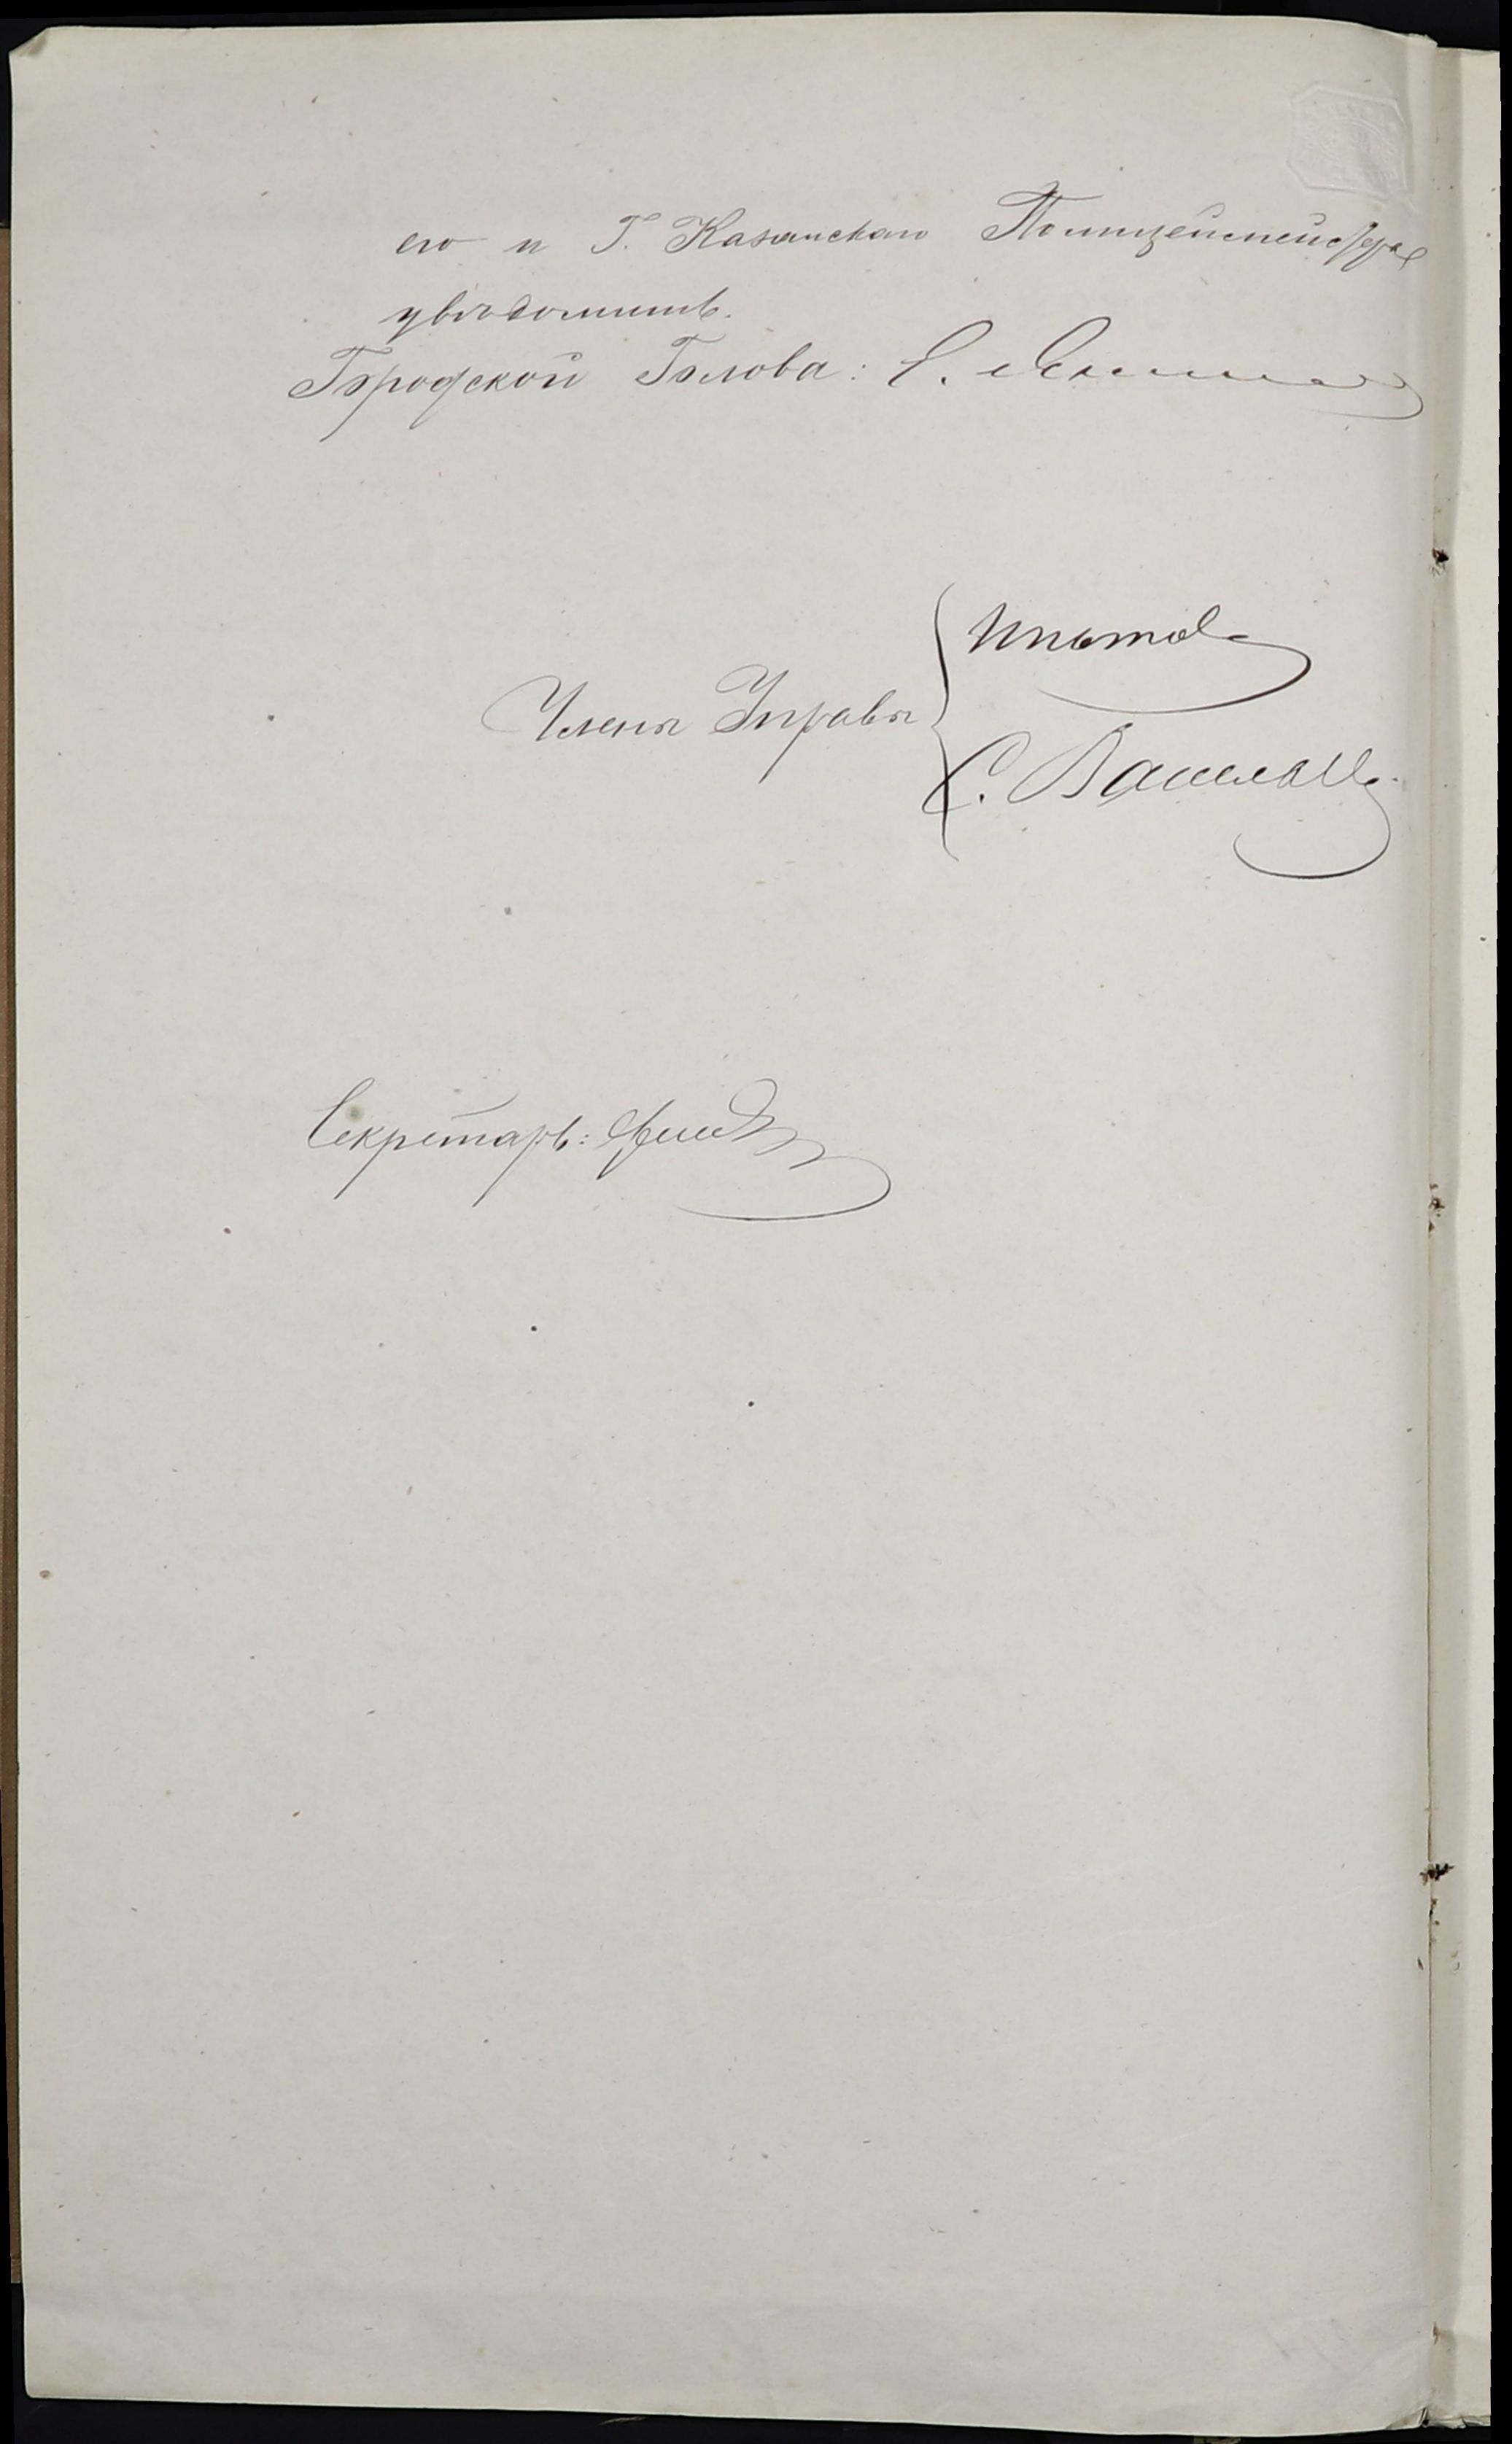 его и Г. Казанскаго Полицеймейстера
увѣдомить.
Городской Голова: Е.
Члены Управы
Ипатов
С. Василье
Секретарь: